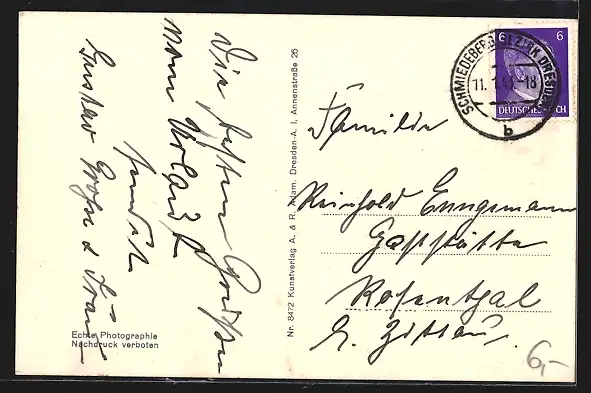 Die besten Grüße
vom Urlaub
sendet
Gustav Große & Frau
Echte Photographie
Nachdruck verboten
Nr. 8472 Kunstverlag A. & R. Adam, Dresden-A. I, Annenstraße 26
SCHMIEDEBERG BEZIRK DRESDEN
11. -18
b
6 6
DEUTSCHES REICH
Familie
Reinhold Enngemann
Gaststätte
Rosenthal
b. Zittau.
6,-